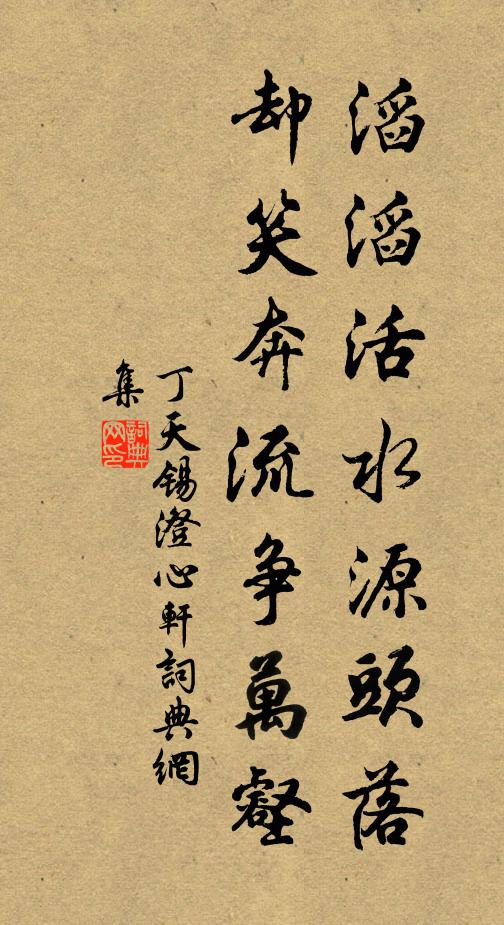 滔滔活水源頭落
却笑奔流爭萬壑
丁天錫澄心軒詞典網
集
詞典
网印